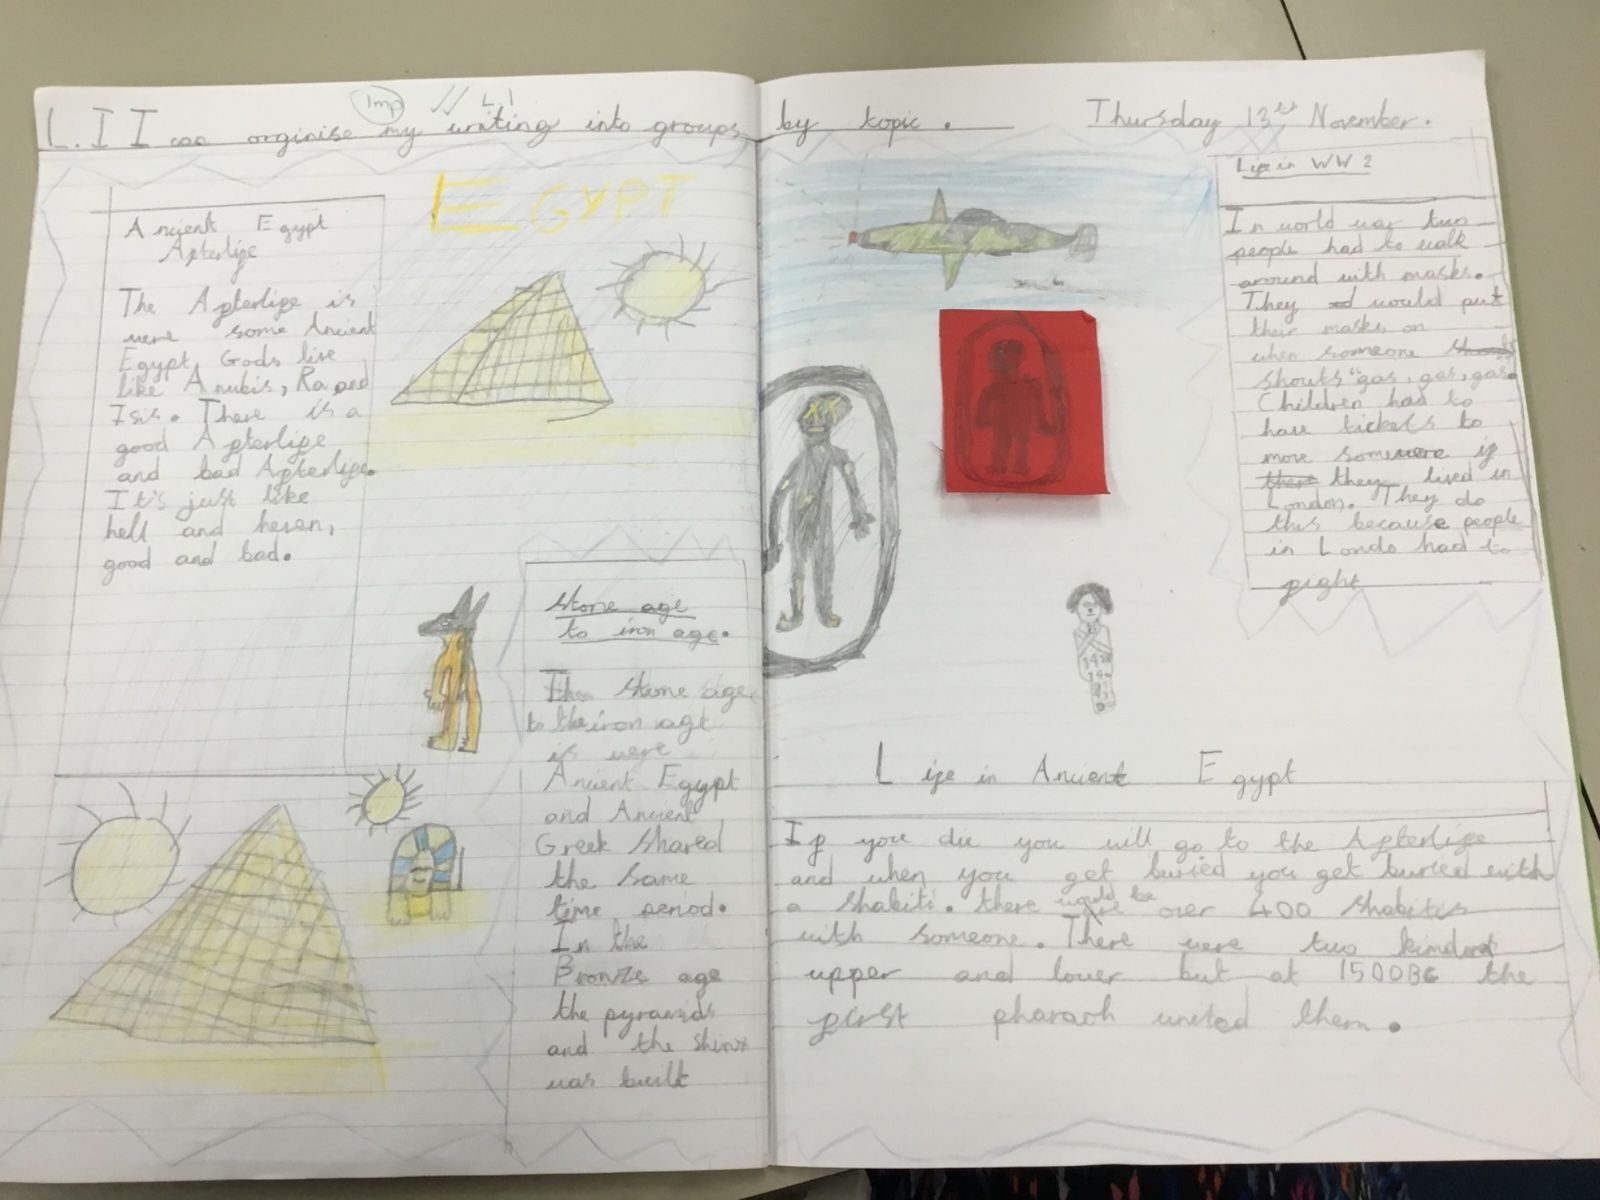 Imp L.I
L. I I can orginise my writing into groups by topic. Thursday 13th November.
EGYPT
Ancient Egypt
Afterlife
The Afterlife is
were some Ancient
Egypt Gods live
like Anubis, Ra and
Isis. There is a
good Afterlife
and bad Afterlife.
It's just like
hell and heven,
good and bad.
Stone age
to iron age.
The stone age
to the iron age
is were
Ancient Egypt
and Ancient
Greek Shared
the same
time period.
In the
Bronze age
the pyramids
and the shinx
was built
Life in WW2
In world war two
people had to walk
around with masks.
They would put
their masks on
when someone
shouts "gas, gas, gas.
Children had to
have tickets to
move somewere if
they lived in
London. They do
this because people
in Londo had to
fight
Life in Ancient Egypt
If you die you will go to the Afterlife
and when you get buried you get buried with
a shabiti. there would be over 400 shabitis
with someone. There were two kindom
upper and lower but at 1500BC the
first pharaoh united them.